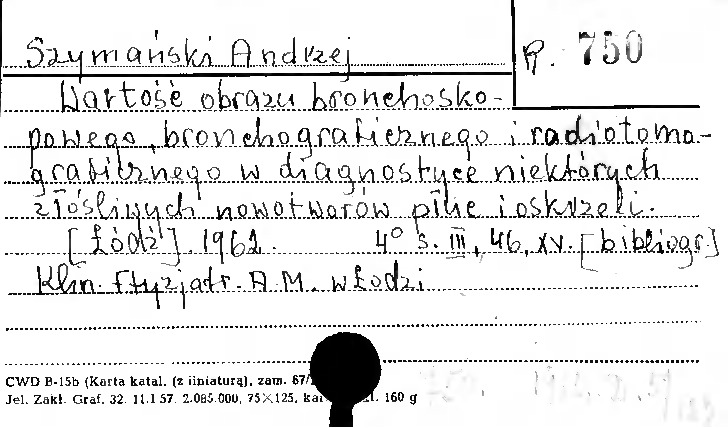 Szymański Andrzej
R. 750
Wartość obrazu bronchosko-
powego, bronchograficznego i radiotomo-
graficznego w diagnostyce niektórych
złośliwych nowotworów płuc i oskrzeli.
[Łódź]. 1962. 4° s. III, 46, XV. [bibliogr.]
Klin. Ftyzjatr. A.M. w Łodzi
CWD B-15b (Karta katal. (z liniaturą), zam. 67/
Jel. Zakł. Graf. 32. 11.1 57. 2.085.000, 75×125, kar 160 g